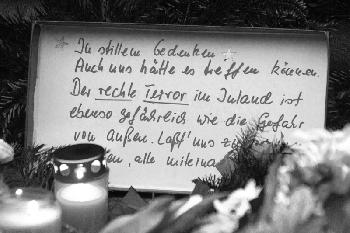 In stillem Gedenken
Auch uns hätte es treffen können.
Der rechte Terror im Inland ist
ebenso gefährlich wie die Gefahr
von außen. Laßt uns
alle miteinander